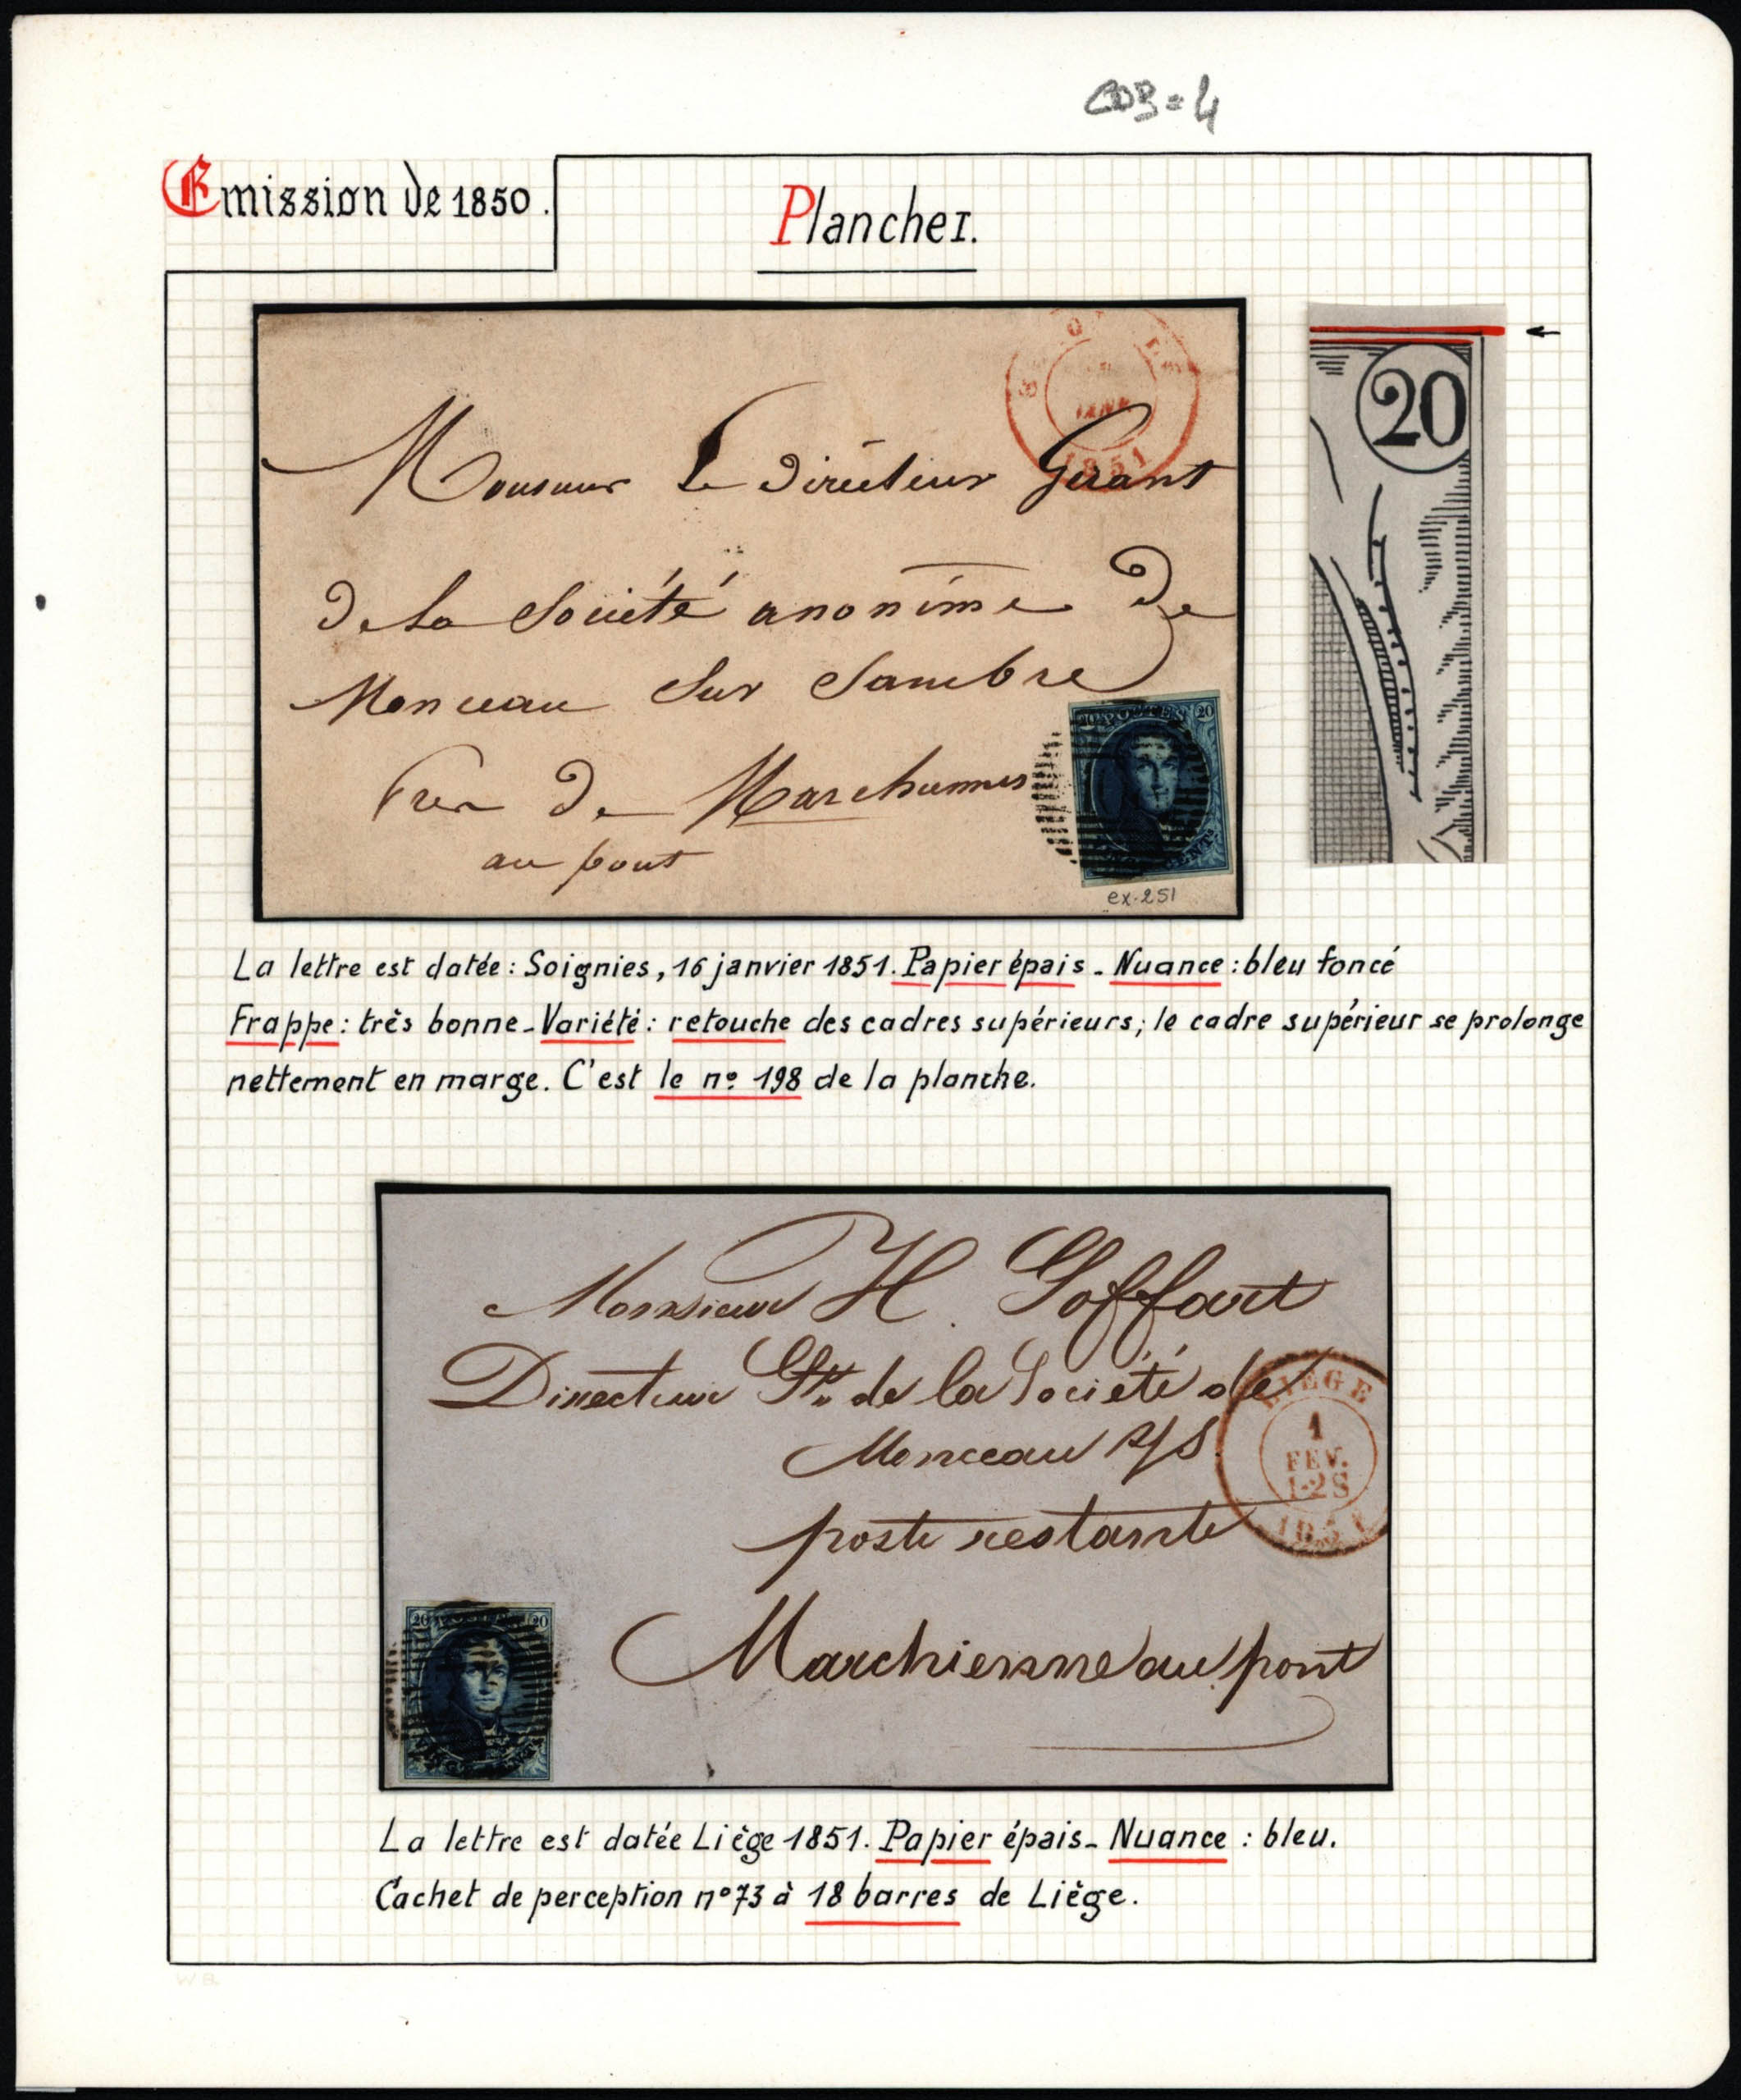 COB = 4
Emission de 1850.
Planche I.
1851
Monsieur Le Directeur Gerant
de la Société anonime de
Monceau Sur Sambre
Pres de Marchiennes
au pont
20 POSTES 20
ex. 251
20
La lettre est datée : Soignies, 16 janvier 1851. Papier épais - Nuance : bleu foncé
Frappe : très bonne - Variété : retouche des cadres supérieurs ; le cadre supérieur se prolonge
nettement en marge. C'est le nº 198 de la planche.
Monsieur H. Goffart
Directeur Gt. de la Société de
Monceau s/S
poste restante
Marchienne au pont
LIEGE
1
FEV.
1-2S
1851
20 20
La lettre est datée Liège 1851. Papier épais - Nuance : bleu.
Cachet de perception n° 73 à 18 barres de Liège.